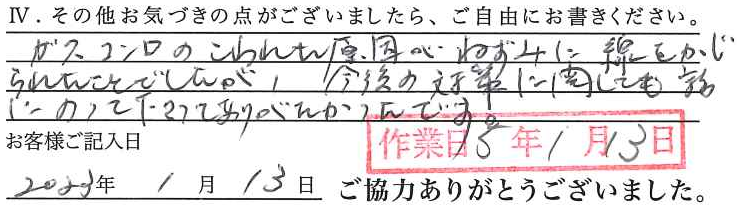 Ⅳ.その他お気づきの点がございましたら、ご自由にお書きください。
ガスコンロのこわれた原因が ねずみに 線をかじ
られたことでしたが, 今後の対策に関しても話
にのって下さってありがたかったんです。
お客様ご記入日
作業日15年1月13日
2023年 1月13日 ご協力ありがとうございました。